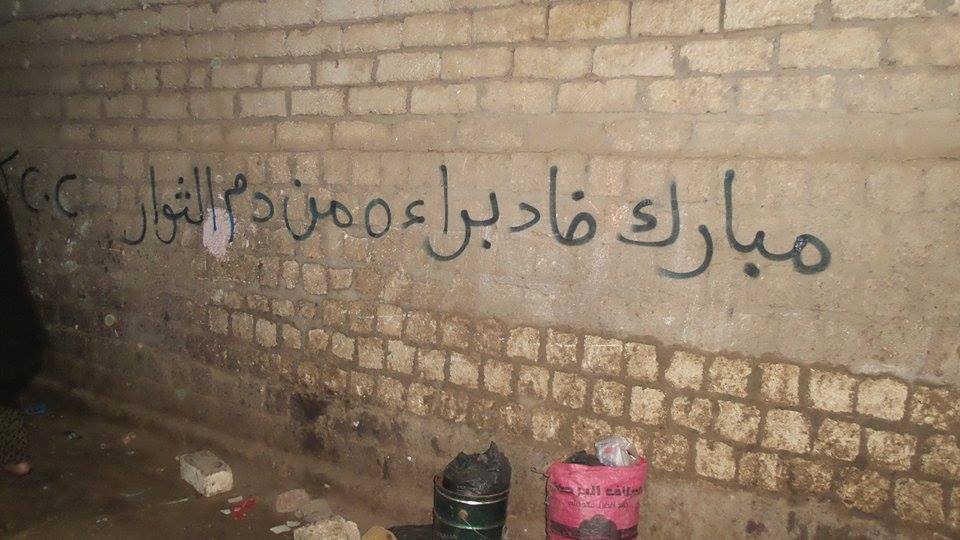 مبارك خاد براءه من دم الثوار C.C